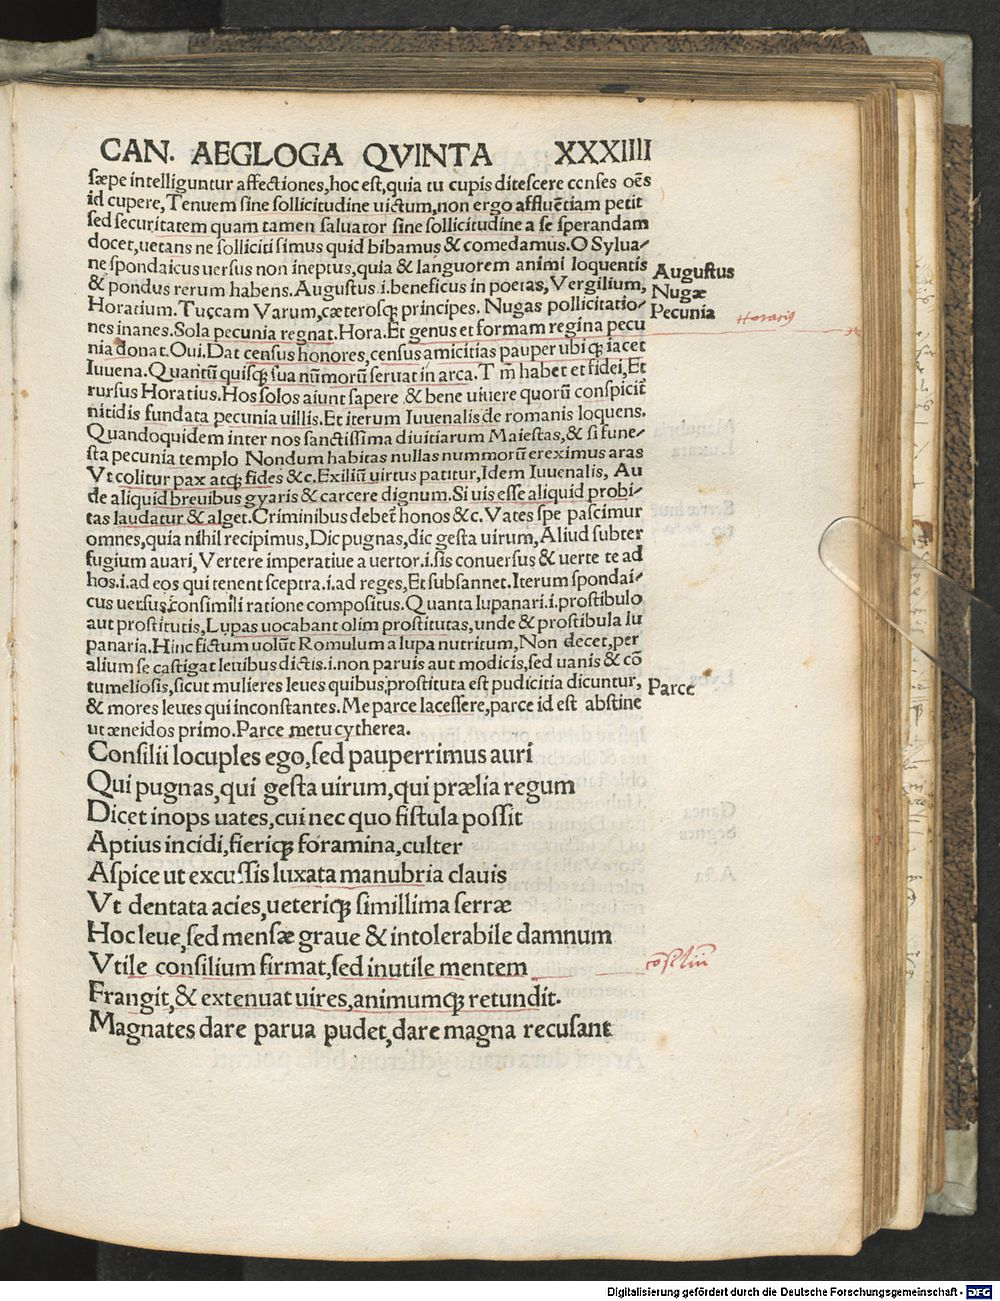 CAN. AEGLOGA QVINTA XXXIIII
ſæpe intelliguntur affectiones, hoc eſt, quia tu cupis diteſcere cenſes oēs
id cupere, Tenuem ſine ſollicitudine uictum, non ergo affluētiam petit
ſed ſecuritatem quam tamen ſaluator ſine ſollicitudine a ſe ſperandam
docet, uetans ne ſolliciti ſimus quid bibamus & comedamus. O Sylua-
ne ſpondaicus uerſus non ineptus, quia & languorem animi loquentis
& pondus rerum habens. Auguſtus .i. beneficus in poetas, Vergilium,
Horatium. Tuccam Varum, cæterosq̃ principes. Nugas pollicitatio-
nes inanes. Sola pecunia regnat. Hora. Et genus et formam regina pecu
nia donat. Oui. Dat cenſus honores, cenſus amicitias pauper ubiq̃ iacet
Iuuena. Quantū quiſq̃ ſua nūmorū ſeruat in arca. T m̄ habet et fidei, Et
rurſus Horatius. Hos ſolos aiunt ſapere & bene uiuere quorū conſpicit̄
nitidis fundata pecunia uillis. Et iterum Iuuenalis de romanis loquens.
Quandoquidem inter nos ſanctiſſima diuitiarum Maieſtas, & ſi fune-
ſta pecunia templo Nondum habitas nullas nummorū ereximus aras
Vt colitur pax atq̃ fides &c. Exiliū uirtus patitur, Idem Iuuenalis, Au
de aliquid breuibus gyaris & carcere dignum. Si uis eſſe aliquid probi-
tas laudatur & alget. Criminibus debet̄ honos &c. Vates ſpe paſcimur
omnes, quia nihil recipimus, Dic pugnas, dic geſta uirum, Aliud ſubter
fugium auari, Vertere imperatiue a uertor .i. ſis conuerſus & uerte te ad
hos .i. ad eos qui tenent ſceptra .i. ad reges, Et ſubſannet. Iterum ſpondai-
cus uerſus, conſimili ratione compoſitus. Quanta lupanari .i. proſtibulo
aut proſtitutis, Lupas uocabant olim proſtitutas, unde & proſtibula lu
panaria. Hinc fictum uolūt Romulum a lupa nutritum, Non decet, per
alium ſe caſtigat leuibus dictis .i. non paruis aut modicis, ſed uanis & cō
tumelioſis, ſicut mulieres leues quibus proſtituta eſt pudicitia dicuntur,
& mores leues qui inconſtantes. Me parce laceſſere, parce id eſt abſtine
ut æneidos primo. Parce metu cytherea.
Conſilii locuples ego, ſed pauperrimus auri
Qui pugnas, qui geſta uirum, qui prælia regum
Dicet inops uates, cui nec quo fiſtula poſſit
Aptius incidi, fieriq̃ foramina, culter
Aſpice ut excuſſis luxata manubria clauis
Vt dentata acies, ueteriq̃ ſimillima ſerræ
Hoc leue, ſed menſæ graue & intolerabile damnum
Vtile conſilium firmat, ſed inutile mentem
Frangit, & extenuat uires, animumq̃ retundit.
Magnates dare parua pudet, dare magna recuſant
Auguſtus
Nugæ
Pecunia
Horatiꝰ
Parce
cōſiliū
Digitalisierung gefördert durch die Deutsche Forschungsgemeinschaft - DFG